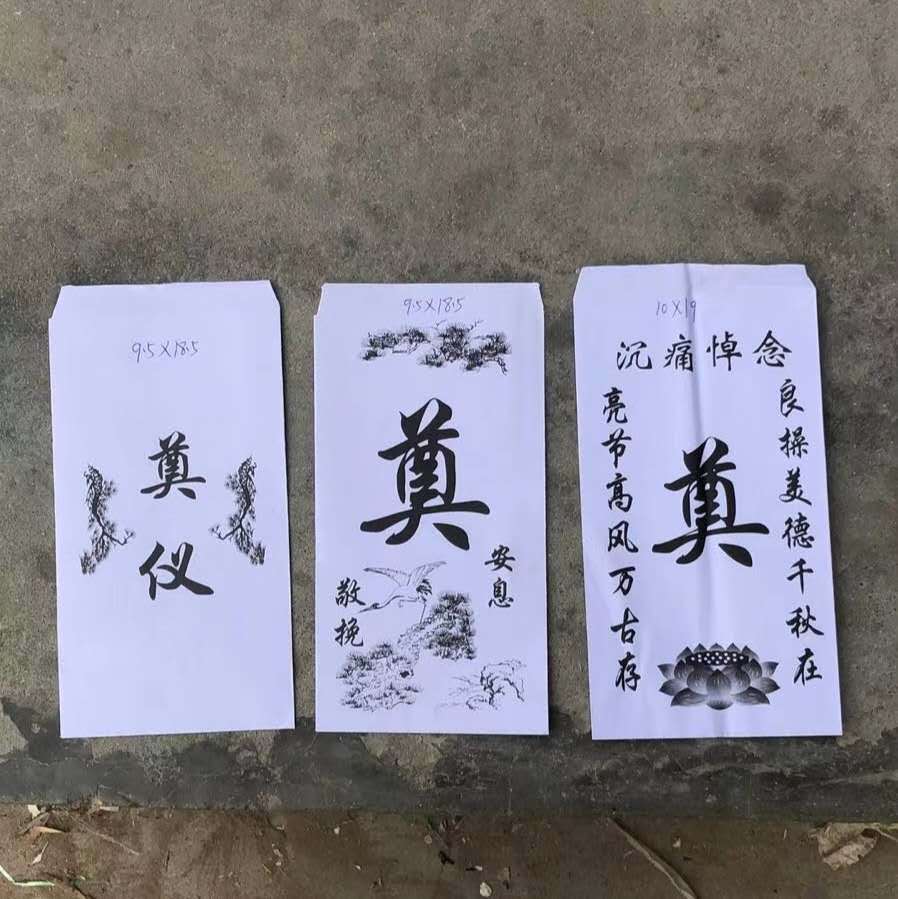 9.5×18.5
奠
仪
9.5×18.5
奠
安息
敬挽
10×19
沉痛悼念
良操美德千秋在
奠
亮节高风万古存